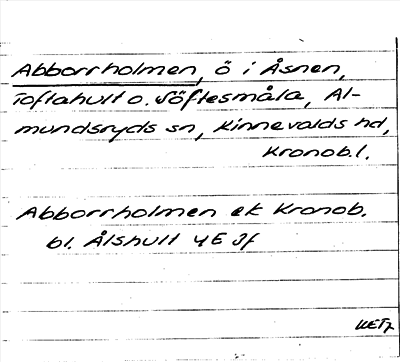 Abborrholmen, ö i Åsnen,
Toftahult o. Söftesmåla, Al-
mundsryds sn, Kinnevalds hd,
Kronob.l.
Abborrholmen ek Kronob.
bl. Ålshult 4E Jf